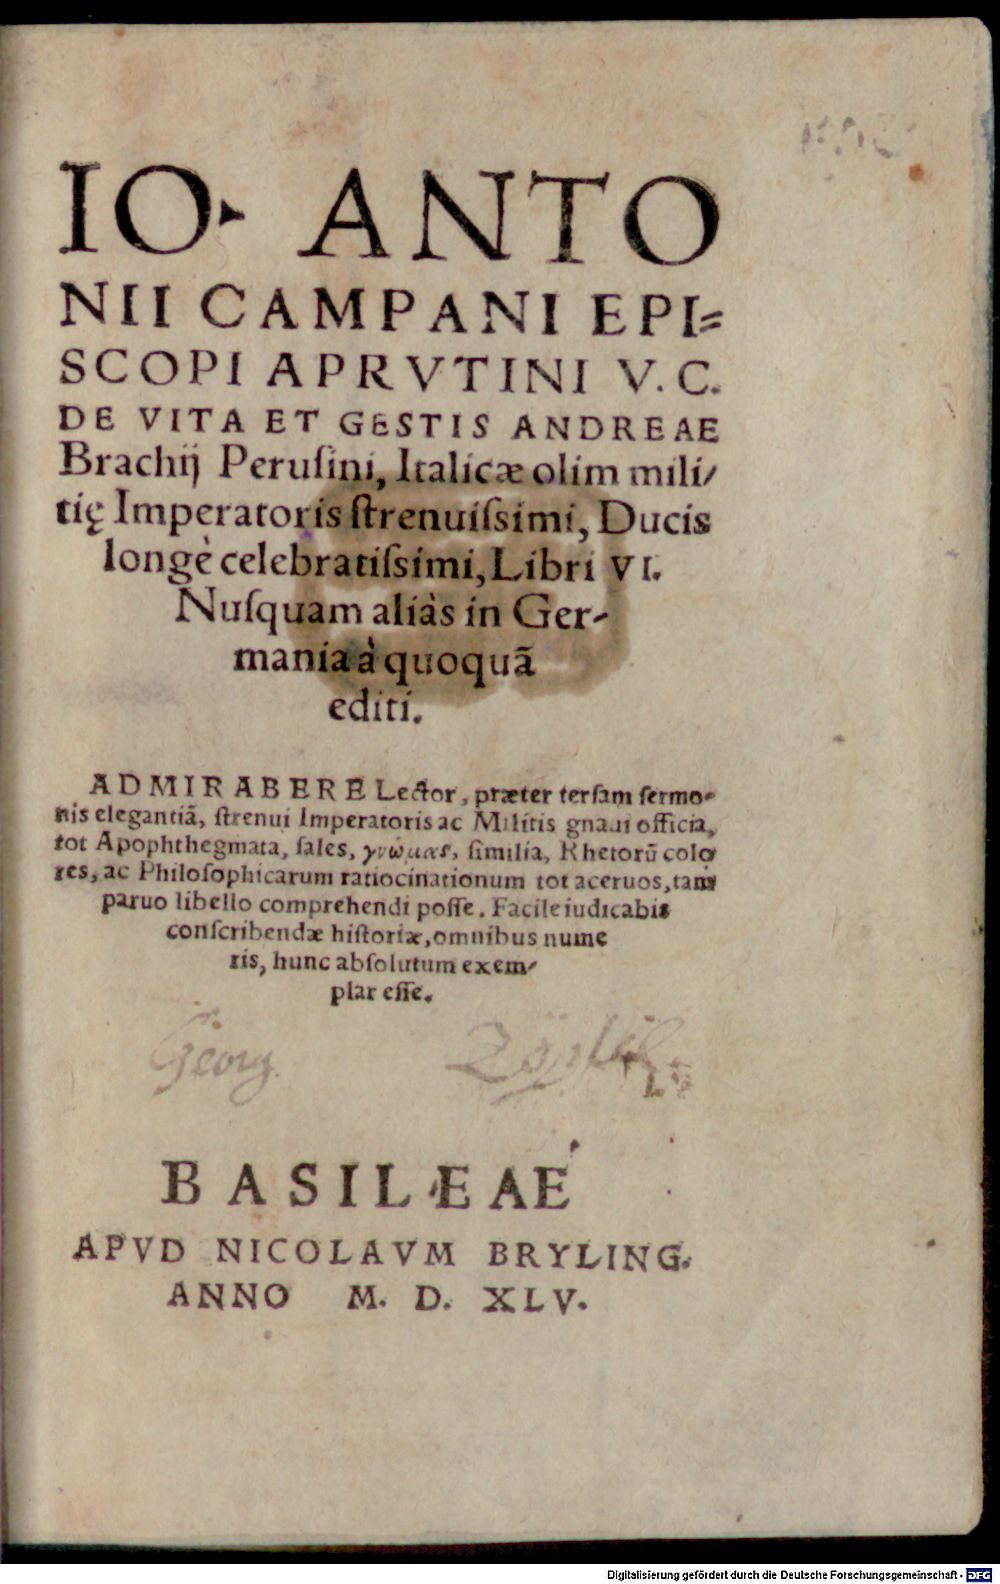 IO. ANTO
NII CAMPANI EPI=
SCOPI APRVTINI V. C.
DE VITA ET GESTIS ANDREAE
Brachij Peruſini, Italicæ olim mili/
tię Imperatoris ſtrenuiſsimi, Ducis
longè celebratiſsimi, Libri VI.
Nuſquam aliàs in Ger-
mania à quoquã
editi.
ADMIRABERE Lector, præter terſam ſermo-
nis elegantiã, ſtrenui Imperatoris ac Militis gnaui officia,
tot Apophthegmata, ſales, γνώμας, ſimilia, Rhetorũ colo
res, ac Philoſophicarum ratiocinationum tot aceruos, tam
paruo libello comprehendi poſſe. Facile iudicabis
conſcribendæ hiſtoriæ, omnibus nume
ris, hunc abſolutum exem/
plar eſſe.
Georg.
BASILEAE
APVD NICOLAVM BRYLING.
ANNO M. D. XLV.
Digitalisierung gefördert durch die Deutsche Forschungsgemeinschaft - DFG